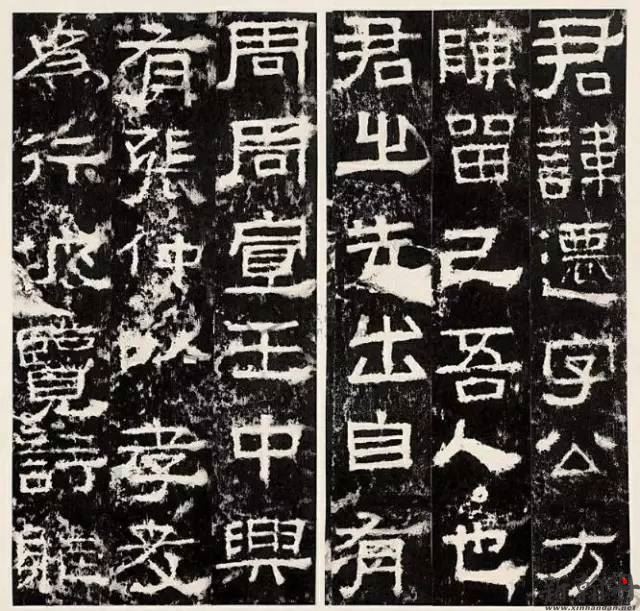 君諱遷字公方
陳留己吾人也
君之先出自有
周周宣王中興
有張仲以孝友
為行披覽詩雅
www.xinhandan.net